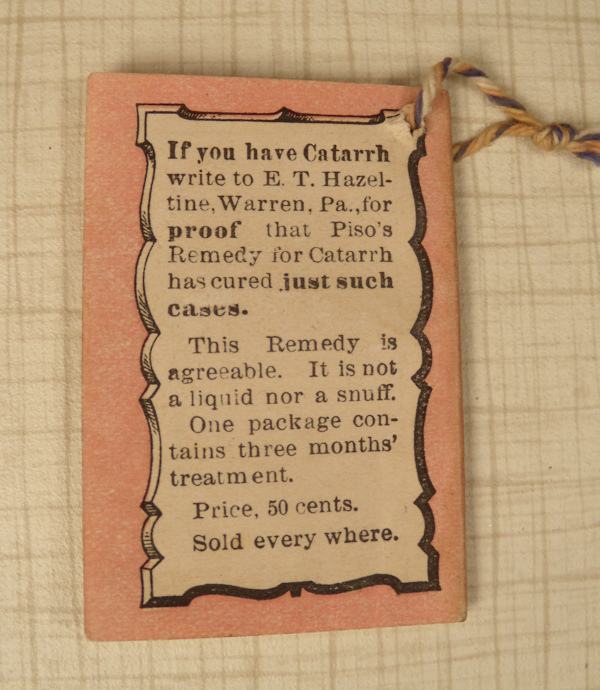 If you have Catarrh
write to E. T. Hazel-
tine, Warren, Pa., for
proof that Piso's
Remedy for Catarrh
has cured just such
cases.
This Remedy is
agreeable. It is not
a liquid nor a snuff.
One package con-
tains three months'
treatment.
Price, 50 cents.
Sold every where.